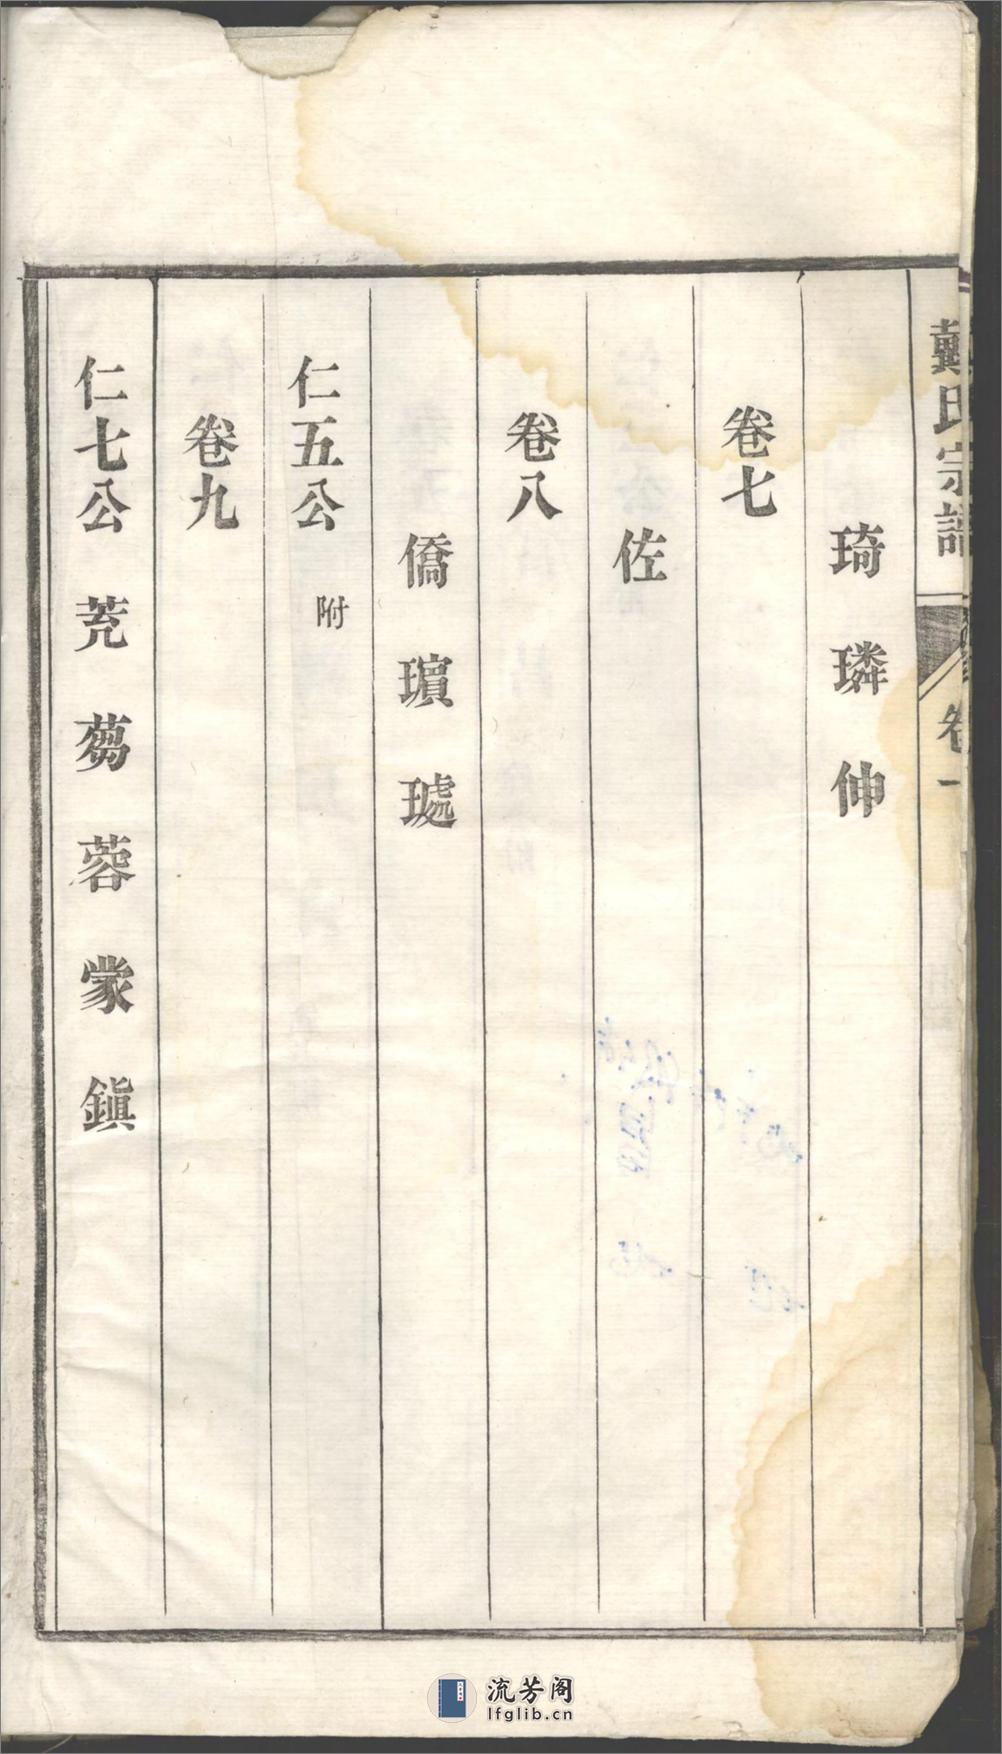 戴氏宗譜
卷一
琦 璘 伸
卷七
佐
卷八
僑 璸 琥
仁五公 附
卷九
仁七公 茺 蒭 蓉 蒙 鎭
流芳阁
lfglib.cn